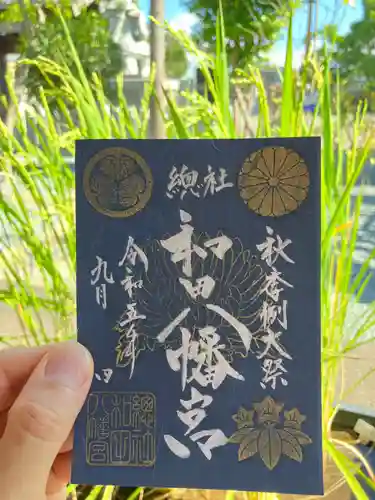 總社
秋季例大祭
和田八幡宮
令和五年
九月
日
總社
和田
八幡宮